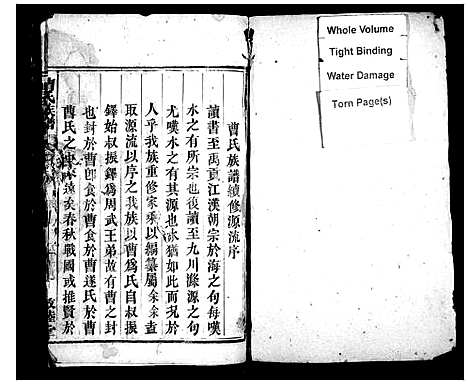 曹氏族譜續修源流序
讀書至禹貢江漢朝宗於海之句每嘆
水之有所宗也後讀至九川滌源之句
尤嘆水之有其源也水猶如此而況於
人乎我族重修家乘以編纂屬余余查
取源流以序之我族以曹爲氏自叔振
鐸始叔振鐸爲周武王弟故有曹之封
也封於曹卽食於曹食於曹遂氏於曹
曹氏之 遠矣春秋戰國或推賢於
曹氏族譜
Whole Volume
Tight Binding
Water Damage
Torn Page(s)